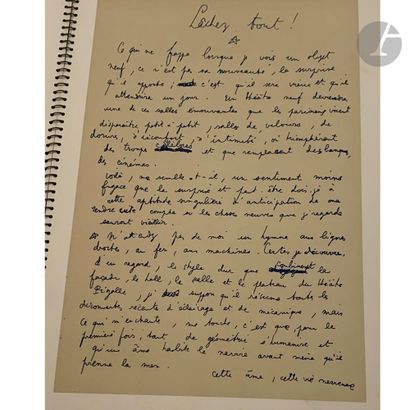 Lâchez tout !
Ce qui me frappe lorsque je vois un objet
neuf, ce n'est pas sa nouveauté, la surprise
qu'il apporte, c'est qu'il sera vieux et qu'il
attendrira un jour. Un théâtre neuf deviendra
une de ces salles émouvantes que les parisiens voient
disparaître petit à petit, salles de velours, de
dorure, d'inconfort, d'intimité, où triomphèrent
de troupes célèbres et que remplacent des banques,
des cinémas.
Voilà, me semble-t-il, un sentiment moins
fugace que la surprise et peut-être dois-je à
cette aptitude singulière d'anticipation de ma
tendre le choses neuves que je regarde
sauront vieillir.
N'attendez pas de moi un hymne aux lignes
droites, au fer, aux machines. Certes je découvre,
d'un regard, le style dur que la
façade, le hall, la salle et le plateau du théâtre
Pigalle, je suppose qu'il résume toutes les
découvertes récentes d'éclairage et de mécanique, mais
ce qui m'enchante, me touche, c'est que, pour la
première fois, tant de géométrie s'humanise et
qu'une âme habite le navire avant même qu'il
prenne la mer.
Cette âme, cette vie nerveuse